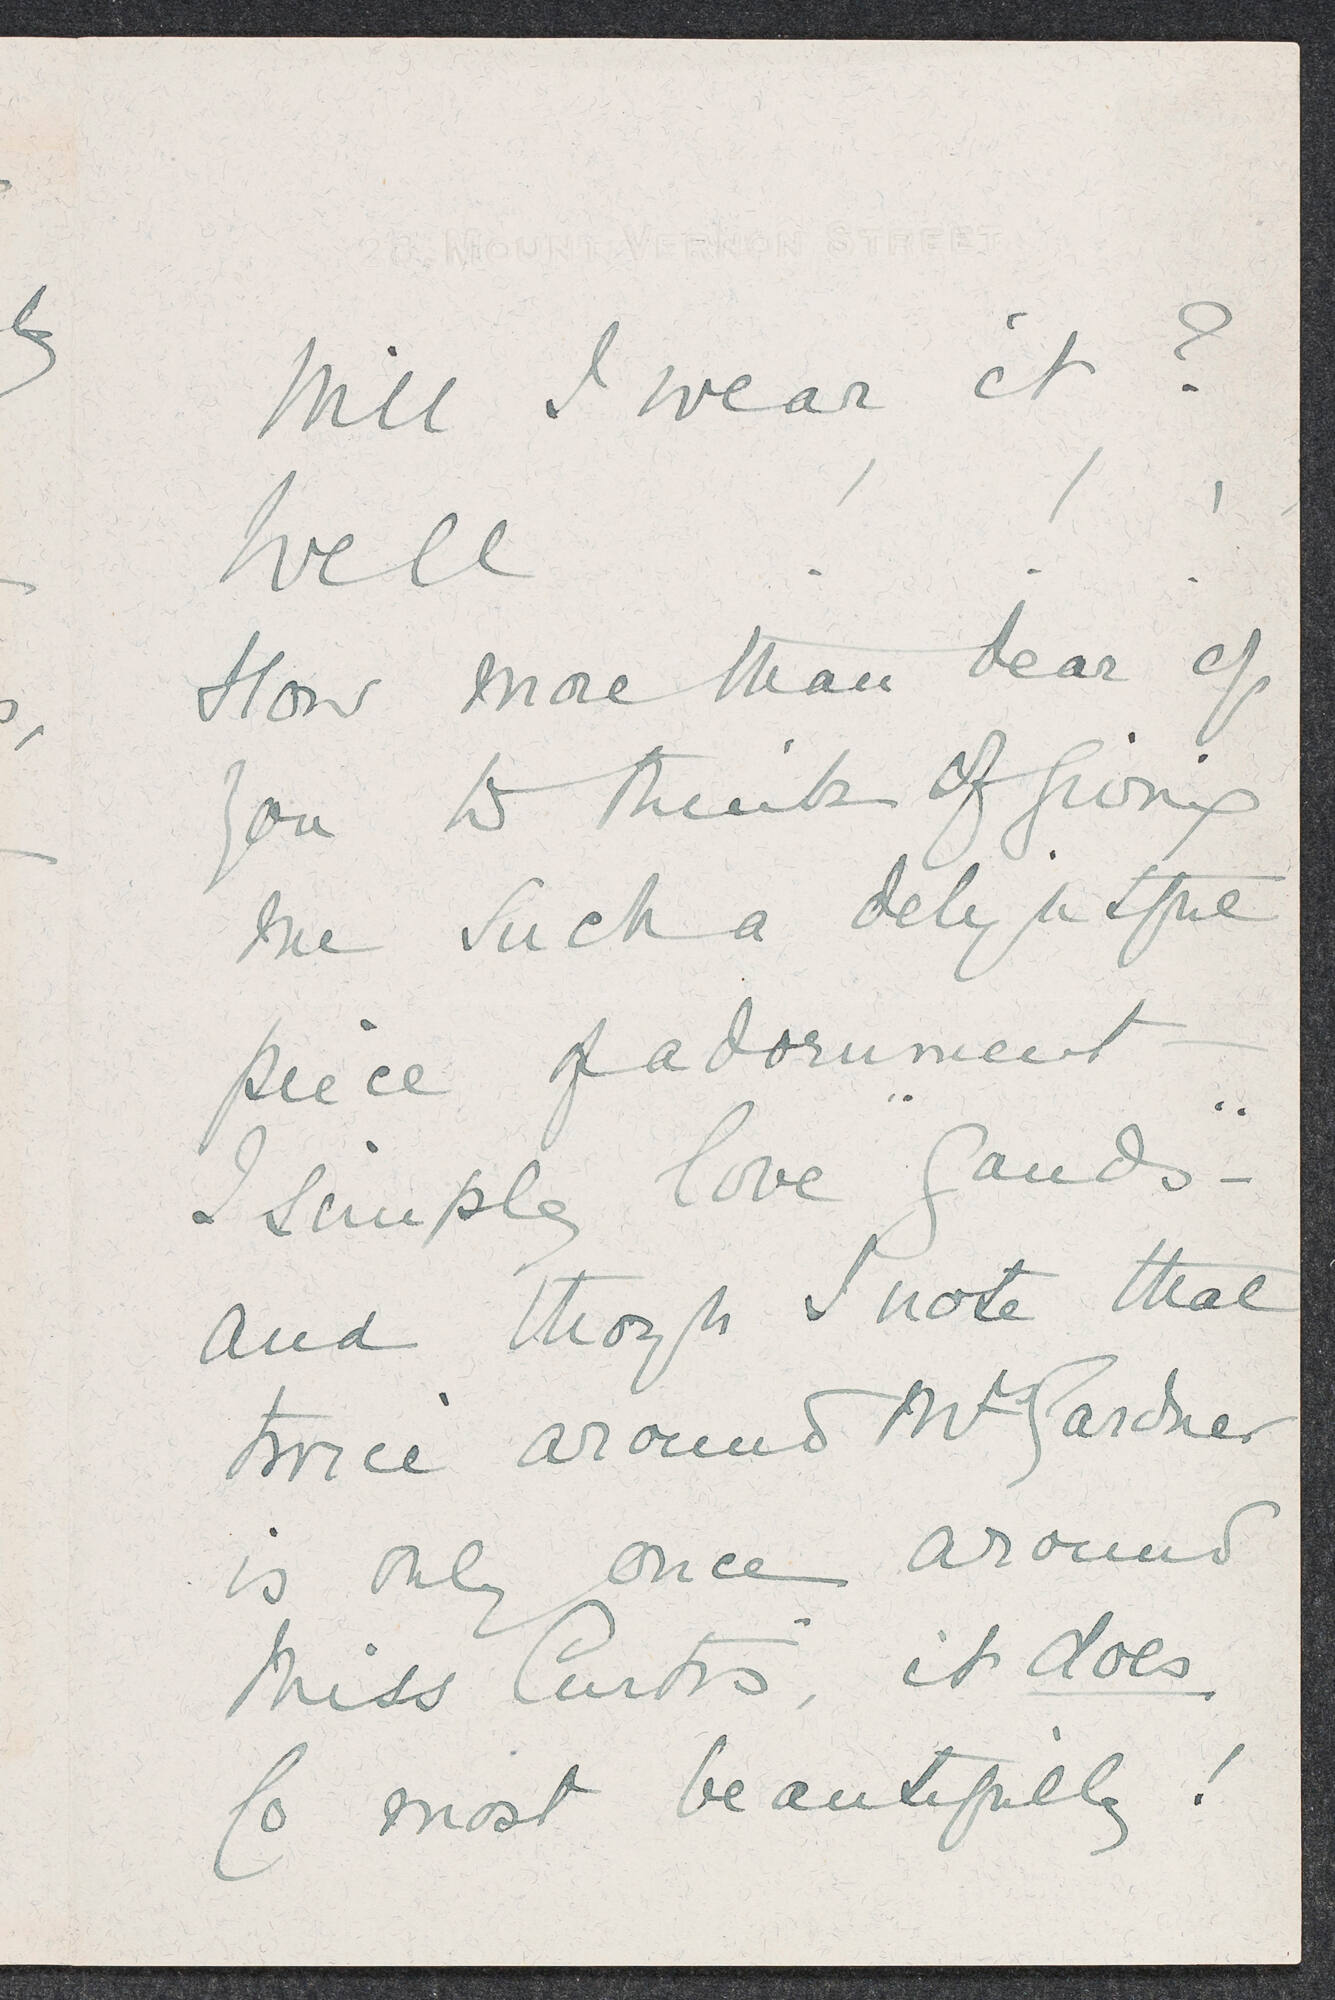 28 MOUNT VERNON STREET
Will I wear it ?
Well ! ! !
How more than dear of
you to think of giving
me such a delightful
piece of adornment —
I simply love "gauds" -
and though I note that
twice around Mrs Gardner
is only once around
Miss Curtis, it does
so most beautifully !